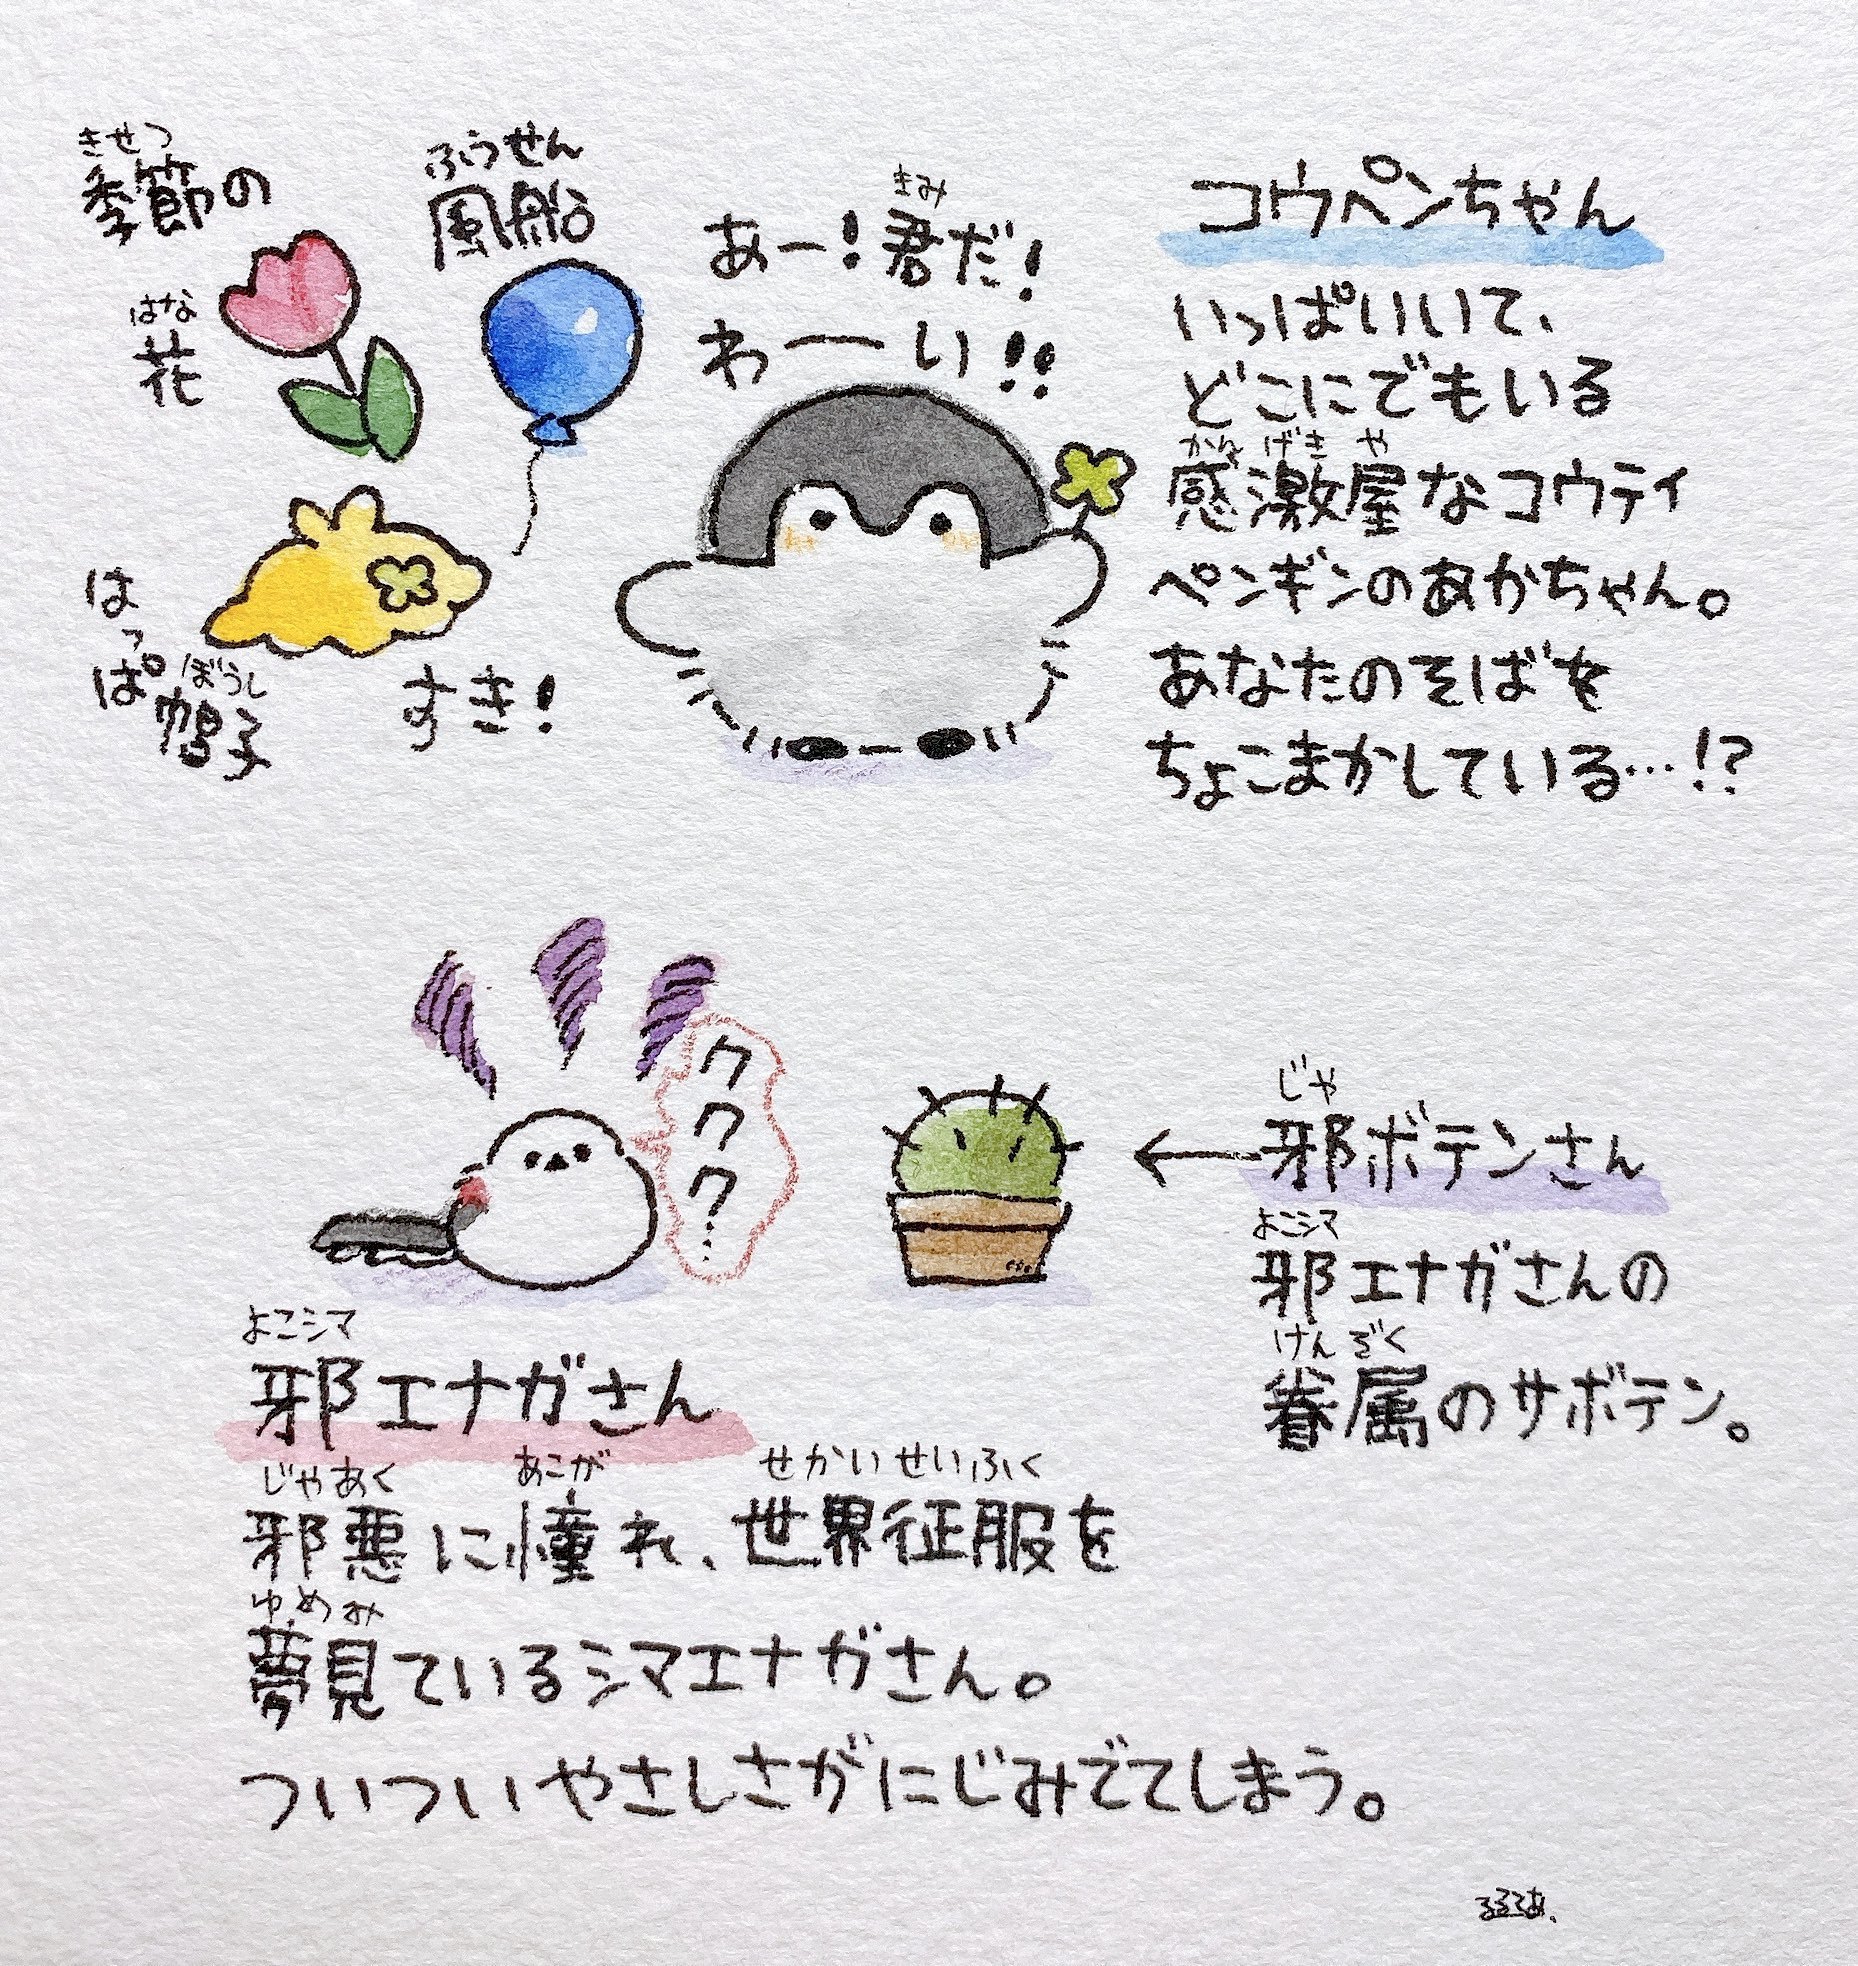 きせつ
季節の
はな
花
ふうせん
風船
はっぱ帽子
ぼうし
すき!
きみ
あー!君だ!
わーい!!
コウペンちゃん
いっぱいいて、
どこにでもいる
かんげきや
感激屋なコウテイ
ペンギンのあかちゃん。
あなたのそばを
ちょこまかしている…!?
ククク?……
じゃ
邪ボテンさん
よこシマ
邪エナガさんの
けんぞく
眷属のサボテン。
よこシマ
邪エナガさん
じゃあく あこが せかいせいふく
邪悪に憧れ、世界征服を
ゆめみ
夢見ているシマエナガさん。
ついついやさしさがにじみでてしまう。
るるてあ、